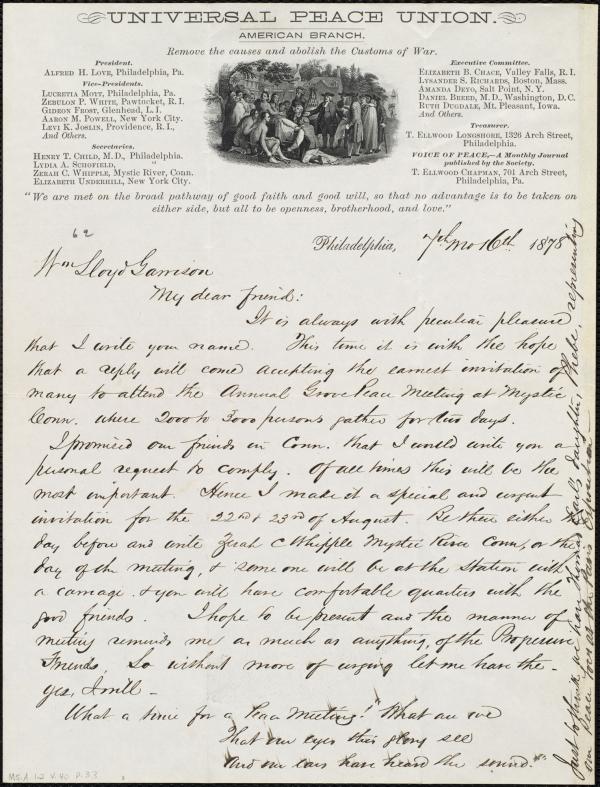 UNIVERSAL PEACE UNION.
AMERICAN BRANCH.
Remove the causes and abolish the Customs of War.
President.
ALFRED H. LOVE, Philadelphia, Pa.
Vice-Presidents.
LUCRETIA MOTT, Philadelphia, Pa.
ZEBULON P. WHITE, Pawtucket, R. I.
GIDEON FROST, Glenhead, L. I.
AARON M. POWELL, New York City.
LEVI K. JOSLIN, Providence, R. I.,
And Others.
Secretaries.
HENRY T. CHILD, M.D., Philadelphia.
LYDIA A. SCHOFIELD,
ZERAH C. WHIPPLE, Mystic River, Conn.
ELIZABETH UNDERHILL, New York City.
Executive Committee.
ELIZABETH B. CHACE, Valley Falls, R. I.
LYSANDER S. RICHARDS, Boston, Mass.
AMANDA DEYO, Salt Point, N. Y.
DANIEL BREED, M.D., Washington, D. C.
RUTH DUGDALE, Mt. Pleasant, Iowa.
And Others.
Treasurer.
T. ELLWOOD LONGSHORE, 1326 Arch Street,
Philadelphia.
VOICE OF PEACE,—A Monthly Journal
published by the Society.
T. ELLWOOD CHAPMAN, 701 Arch Street,
Philadelphia, Pa.
"We are met on the broad pathway of good faith and good will, so that no advantage is to be taken on
either side, but all to be openness, brotherhood, and love."
62
Philadelphia, 7th mo 16th 1878
Wm Lloyd Garrison
My dear friend:
It is always with peculiar pleasure
that I write your name. This time it is with the hope
that a reply will come accepting the earnest invitation of
many to attend the Annual Grove Peace Meeting at Mystic
Conn. where 2000 to 3000 persons gather for two days.
I promised our friends in Conn. that I would write you a
personal request to comply. Of all times this will be the
most important. Hence I made it a special and urgent
invitation for the 22nd & 23rd of August. Be there either the
day before and write Zerah C Whipple Mystic River Conn, or the
day of the meeting, & some one will be at the Station with
a carriage & you will have comfortable quarters with the
good friends. I hope to be present and the manner of
meeting reminds me as much as anything, of the Progressive
Friends. So without more of urging let me have the -
yes, I will -
What a time for a Peace Meeting! What are we
That our eyes this glory see
And our ears have heard the sound."
Just to think we have Thomas Earl's daughter, Phebe, representing
our Peace at the Paris Exposition
MS.A.1.2 V.40 P.33